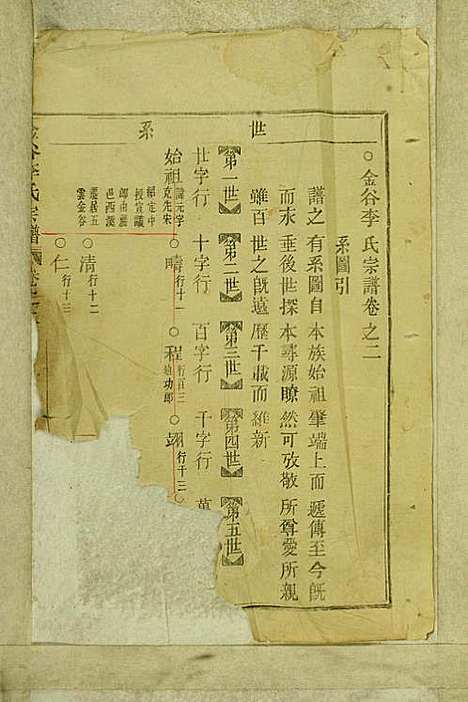 世系
金谷李氏宗譜卷之二
系圖引
譜之有系圖自本族始祖肇端上而遞傳至今旣
而求垂後世探本尋源瞭然可攷敬所尊愛所親
雖百世之旣遠歷千載而維新
第一世 第二世 第三世 第四世 第五世
廿字行 十字行 百字行 千字行 萬
始祖 諱元字
克先宋
紹定中
授宣議
郎由麗
邑西溪
遷居五
雲金谷
晴 行十一
程 行百三
迪功郎
翊 行千三
清 行十二
仁 行十三
李氏宗譜